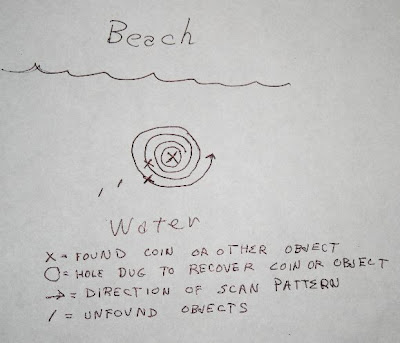 Beach
Water
X = FOUND COIN OR OTHER OBJECT
O = HOLE DUG TO RECOVER COIN OR OBJECT
→ = DIRECTION OF SCAN PATTERN
/ = UNFOUND OBJECTS